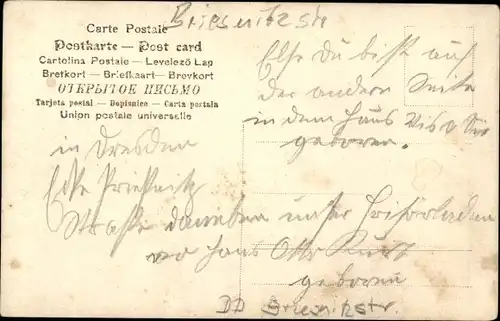 Carte Postale
Postkarte — Post card
Cartolina Postale — Levelező Lap
Bretkort — Briefkaart — Brevkort
ОТКРЫТОЕ ПИСЬМО
Tarjeta postal — Dopisnice — Carta postala
Union postale universelle
Else du bist auf
der andern Seite
in dem Haus vis a
geboren.
in Dresden
Ecke Prießnitz
Straße daneben unser Frisörladen
wo Hans Otto Kurt
geboren
DD Briesnitzstr.